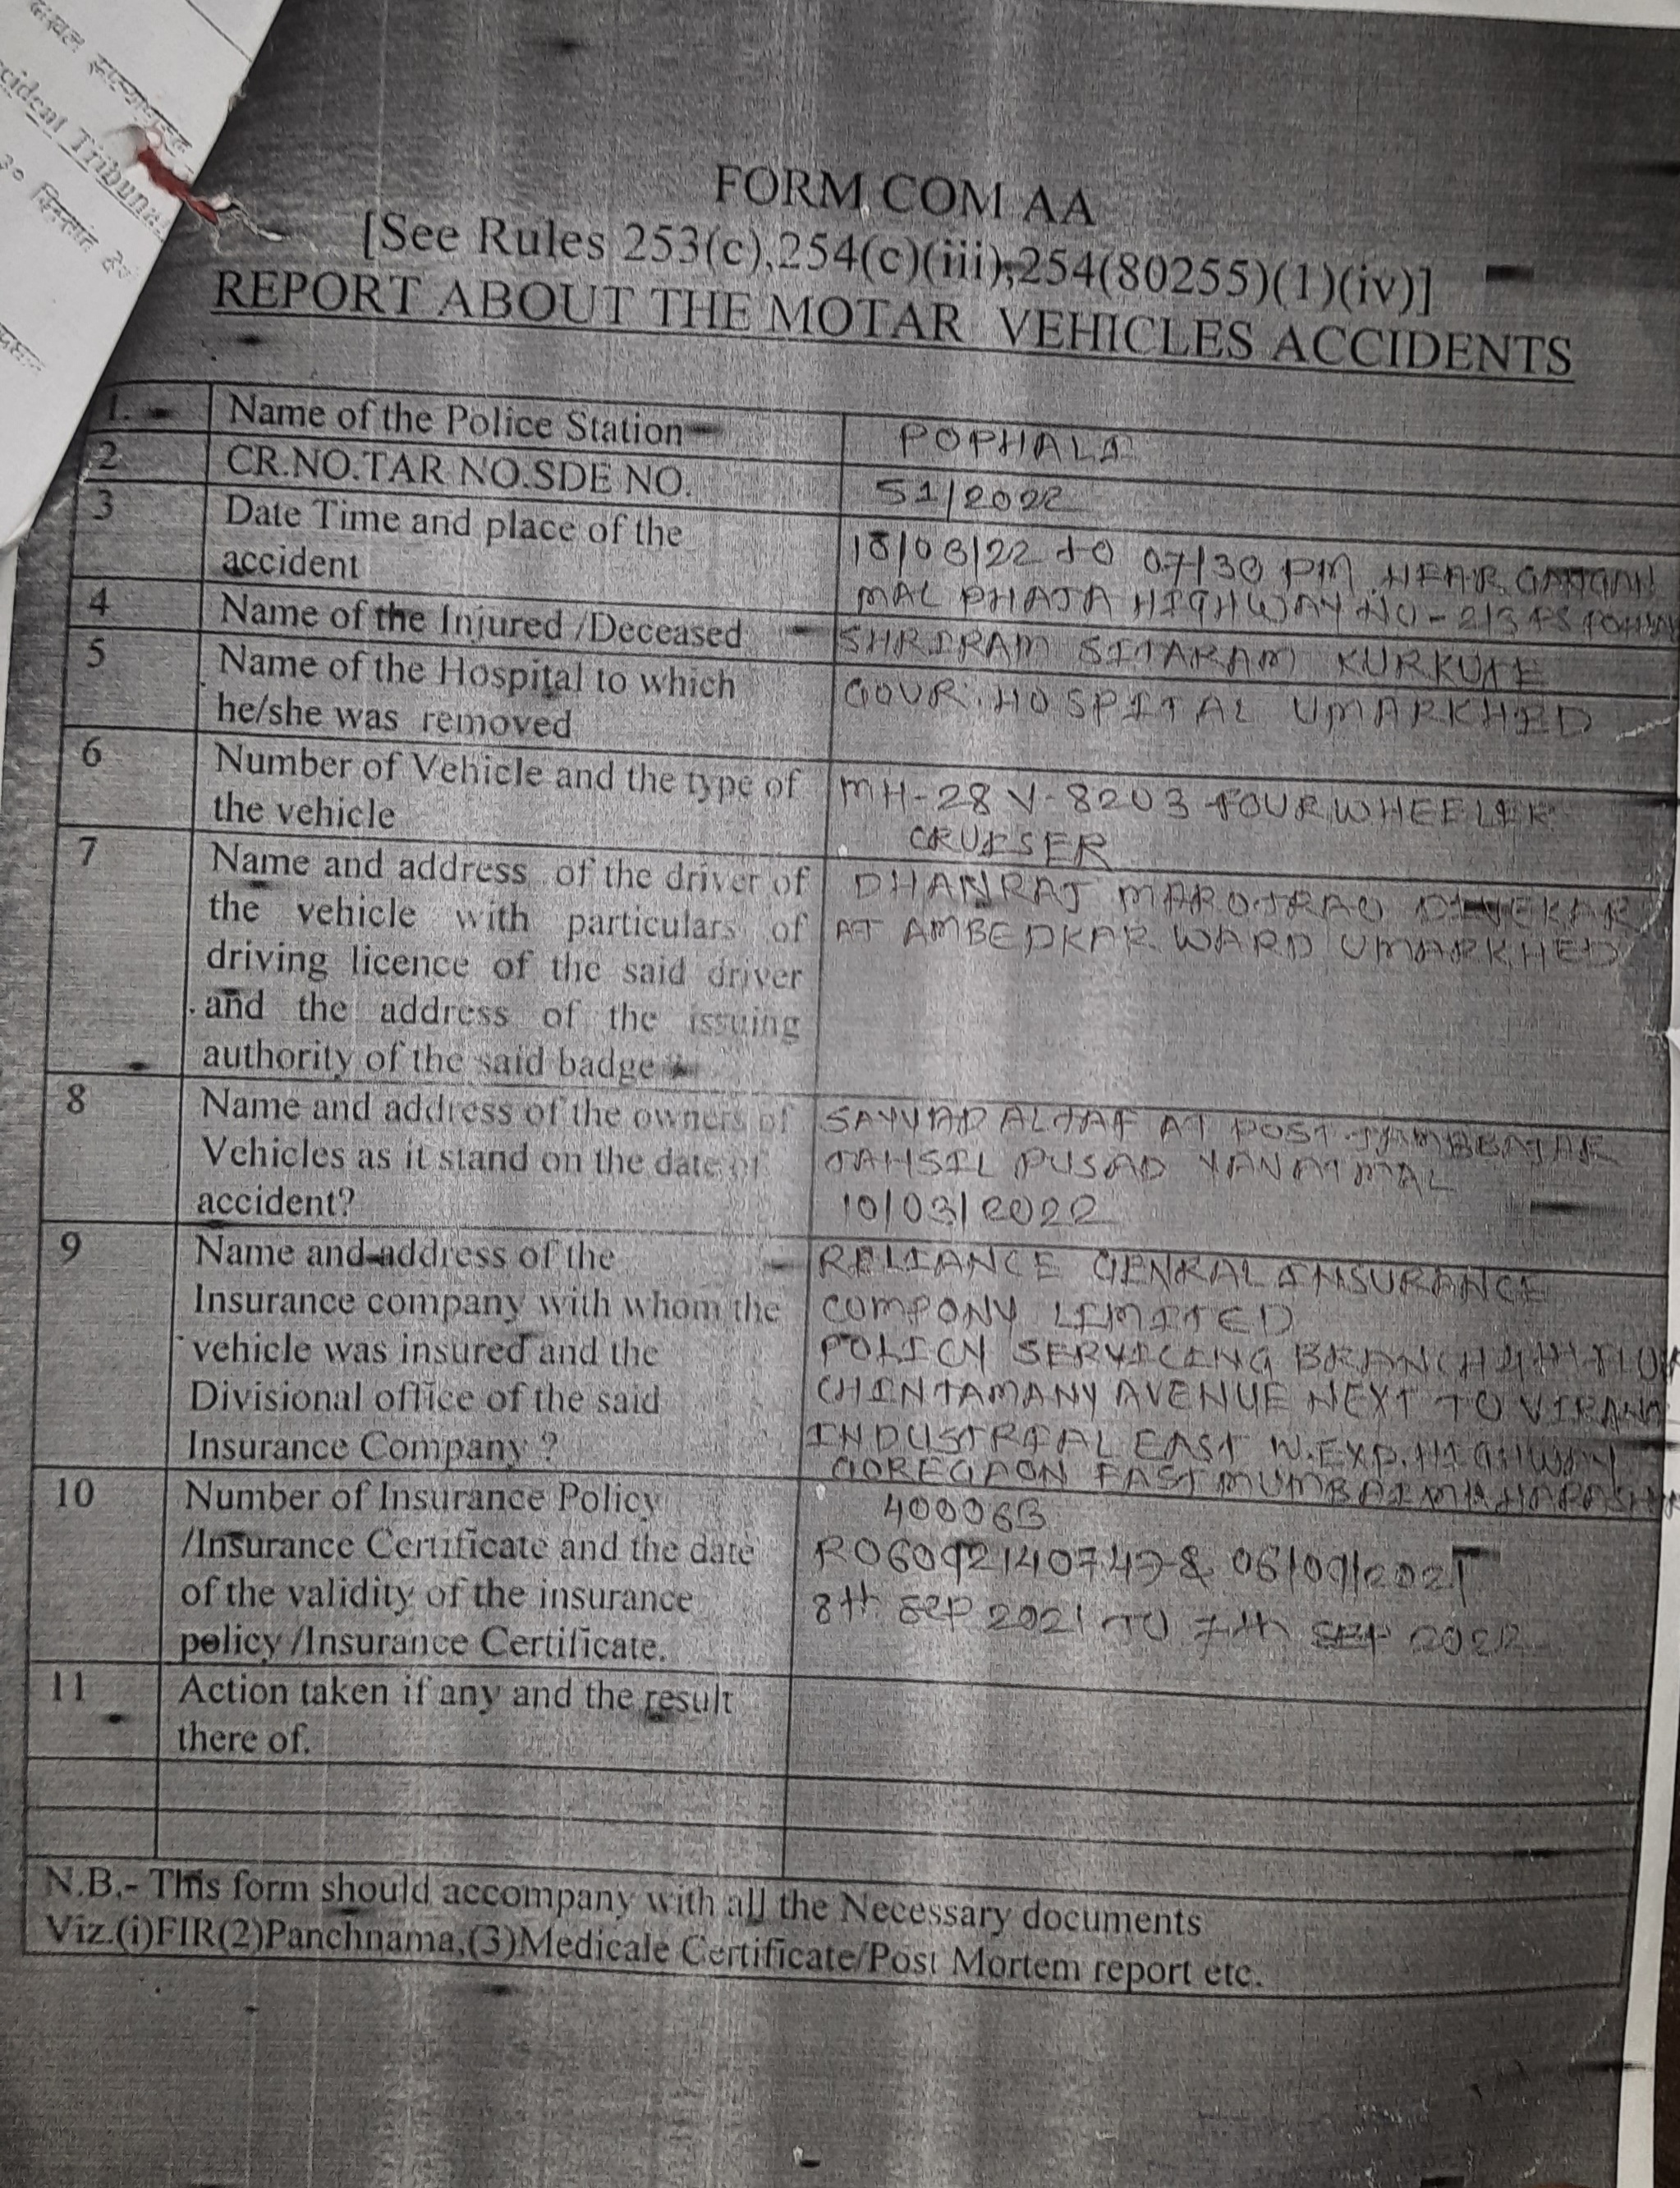 cident Tribunal
FORM COM AA
[See Rules 253(c),254(c)(iii),254(80255)(1)(iv)]
REPORT ABOUT THE MOTAR VEHICLES ACCIDENTS
1. Name of the Police Station POPHALI
2 CR.NO.TAR NO.SDE NO. 51/2022
3 Date Time and place of the
accident
07/30 PM
HIGHWAY NO-
4 Name of the Injured /Deceased SHRIRAM SITARAM KURKUTE
5 Name of the Hospital to which
he/she was removed
GOUR. HOSPITAL UMARKHED
6 Number of Vehicle and the type of
the vehicle
MH-28 V-8203 FOUR WHEELER
CRUISER
7 Name and address of the driver of
the vehicle with particulars of
driving licence of the said driver
and the address of the issuing
authority of the said badge
DHANRAJ MAROTRAO
AT AMBEDKAR WARD UMARKHED
8 Name and address of the owners of
Vehicles as it stand on the date of
accident?
SAYYAD ALTAF AT POST
TAHSIL PUSAD YANATMAL
10/03/2022
9 Name and address of the
Insurance company with whom the
vehicle was insured and the
Divisional office of the said
Insurance Company ?
RELIANCE GENRAL INSURANCE
COMPONY LIMITED
POLICY SERVICING BRANCH 4TH
CHINTAMANY AVENUE NEXT TO VIRAWANI
INDUSTRIAL EAST W.EXP.HIGHWAY
GOREGAON EAST MUMBAI
10 Number of Insurance Policy
/Insurance Certificate and the date
of the validity of the insurance
policy /Insurance Certificate.
400063
8th SEP 2021 TO 7th SEP 2022
11 Action taken if any and the result
there of.
N.B.- This form should accompany with all the Necessary documents
Viz.(i)FIR(2)Panchnama,(3)Medicale Certificate/Post Mortem report etc.